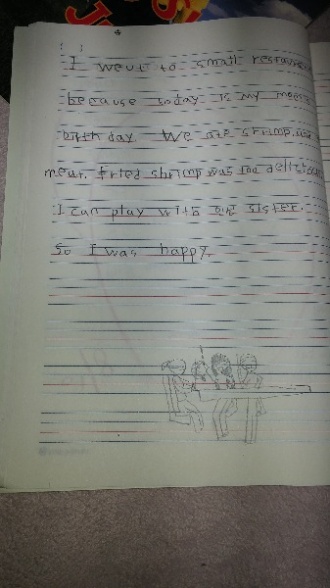 I went to small restaur
because today is my mom's
birthday. We ate shrimp,
meat. fried shrimp was the delicious
I can play with and sister.
So I was happy.